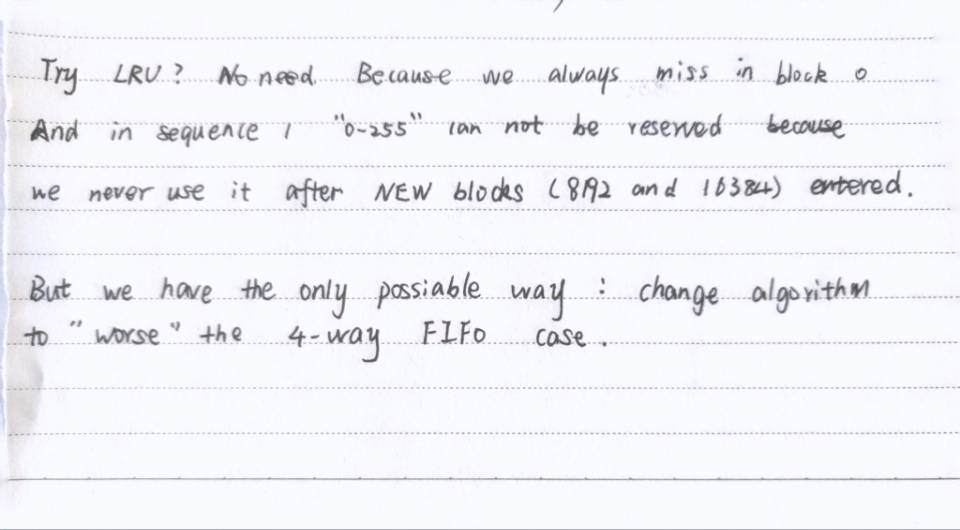 Try LRU? No need. Because we always miss in block 0
And in sequence 1 "0-255" can not be reserved because
we never use it after NEW blocks (8192 and 16384) entered.
But we have the only possiable way : change algorithm
to "worse" the 4-way FIFO case.